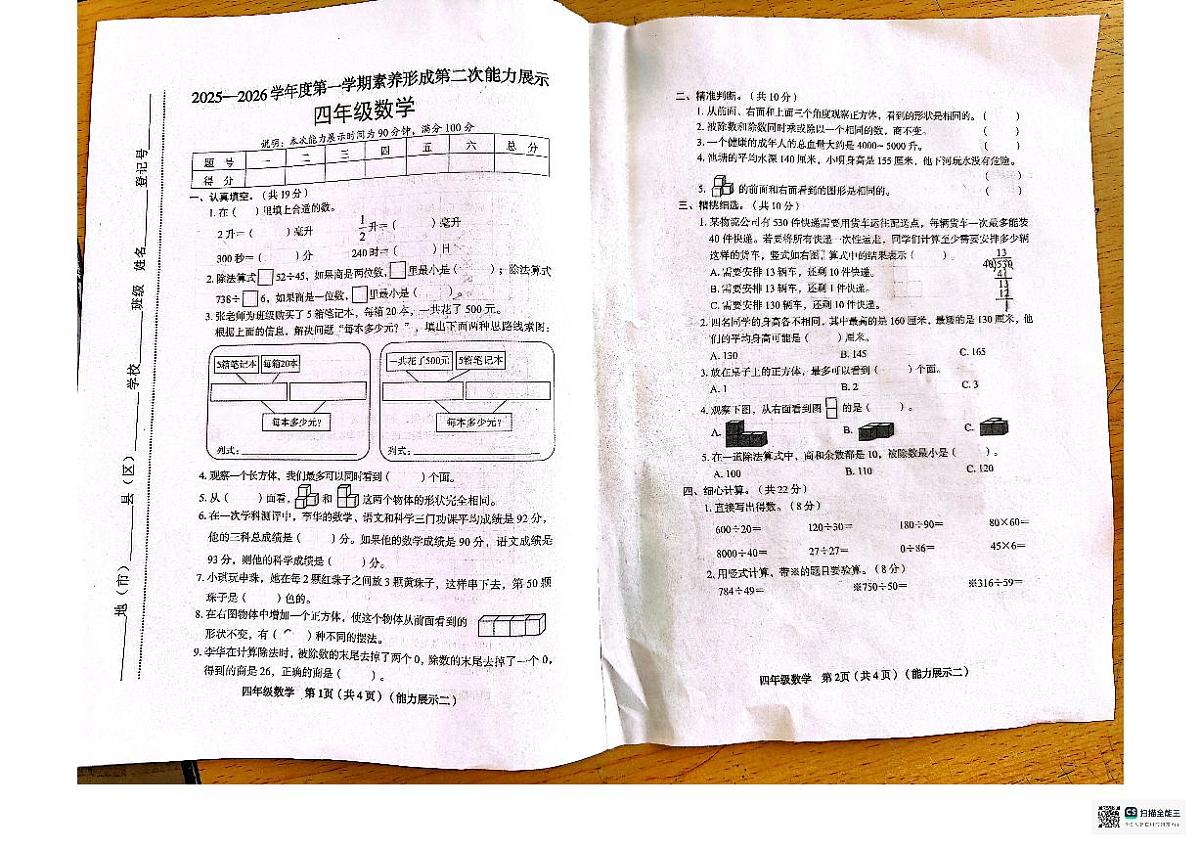 2025—2026学年度第一学期素养形成第二次能力展示
四年级数学
说明：本次能力展示时间为90分钟，满分100分
题 号 一 二 三 四 五 六 总 分
得 分
地（市） 县（区） 学校 班级 姓名 登记号
一、认真填空。（共19分）
1. 在（ ）里填上合适的数。
2升=（ ）毫升 1/2升=（ ）毫升
300秒=（ ）分 240时=（ ）日
2. 除法算式□52÷45，如果商是两位数，□里最小是（ ）；除法算式
738÷□6，如果商是一位数，□里最小是（ ）。
3. 张老师为班级购买了5箱笔记本，每箱20本，一共花了500元。
根据上面的信息，解决问题“每本多少元？”，填出下面两种思路线索图：
5箱笔记本 每箱20本
每本多少元？
列式：
一共花了500元 5箱笔记本
每本多少元？
列式：
4. 观察一个长方体，我们最多可以同时看到（ ）个面。
5. 从（ ）面看， 和 这两个物体的形状完全相同。
6. 在一次学科测评中，李华的数学、语文和科学三门功课平均成绩是92分，
他的三科总成绩是（ ）分。如果他的数学成绩是90分，语文成绩是
93分，则他的科学成绩是（ ）分。
7. 小琪玩串珠，她在每2颗红珠子之间放3颗黄珠子，这样串下去，第50颗
珠子是（ ）色的。
8. 在右图物体中增加一个正方体，使这个物体从前面看到的
形状不变，有（ ）种不同的摆法。
9. 李华在计算除法时，被除数的末尾去掉了两个0，除数的末尾去掉了一个0，
得到的商是26，正确的商是（ ）。
四年级数学 第1页（共4页）（能力展示二）
二、精准判断。（共10分）
1. 从前面、右面和上面三个角度观察正方体，看到的形状是相同的。（ ）
2. 被除数和除数同时乘或除以一个相同的数，商不变。（ ）
3. 一个健康的成年人的总血量大约是4000~5000升。（ ）
4. 池塘的平均水深140厘米，小明身高是155厘米，他下河玩水没有危险。
（ ）
5. 的前面和右面看到的图形是相同的。（ ）
三、精挑细选。（共10分）
1. 某物流公司有530件快递需要用货车运往配送点，每辆货车一次最多能装
40件快递。若要将所有快递一次性运走，同学们计算至少需要安排多少辆
这样的货车，竖式如右图，算式中的结果表示（ ）。
A. 需要安排13辆车，还剩10件快递。
B. 需要安排13辆车，还剩1件快递。
C. 需要安排130辆车，还剩10件快递。
2. 四名同学的身高各不相同，其中最高的是160厘米，最矮的是130厘米，他
们的平均身高可能是（ ）厘米。
A. 130 B. 145 C. 165
3. 放在桌子上的正方体，最多可以看到（ ）个面。
A. 1 B. 2 C. 3
4. 观察下图，从右面看到图 的是（ ）。
A. B. C.
5. 在一道除法算式中，商和余数都是10，被除数最小是（ ）。
A. 100 B. 110 C. 120
四、细心计算。（共22分）
1. 直接写出得数。（8分）
600÷20= 120÷30= 180÷90= 80×60=
8000÷40= 27÷27= 0÷86= 45×6=
2. 用竖式计算，带※的题目要验算。（8分）
784÷49= ※750÷50= ※316÷59=
四年级数学 第2页（共4页）（能力展示二）
CS 扫描全能王